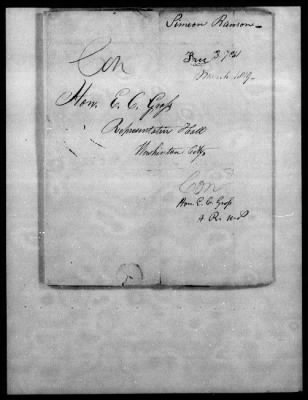 Simeon Ranson
Con
March 1819
Hon. E. C. Gross
Representative Hall
Washinton City
Con
Hon. E. C. Gross